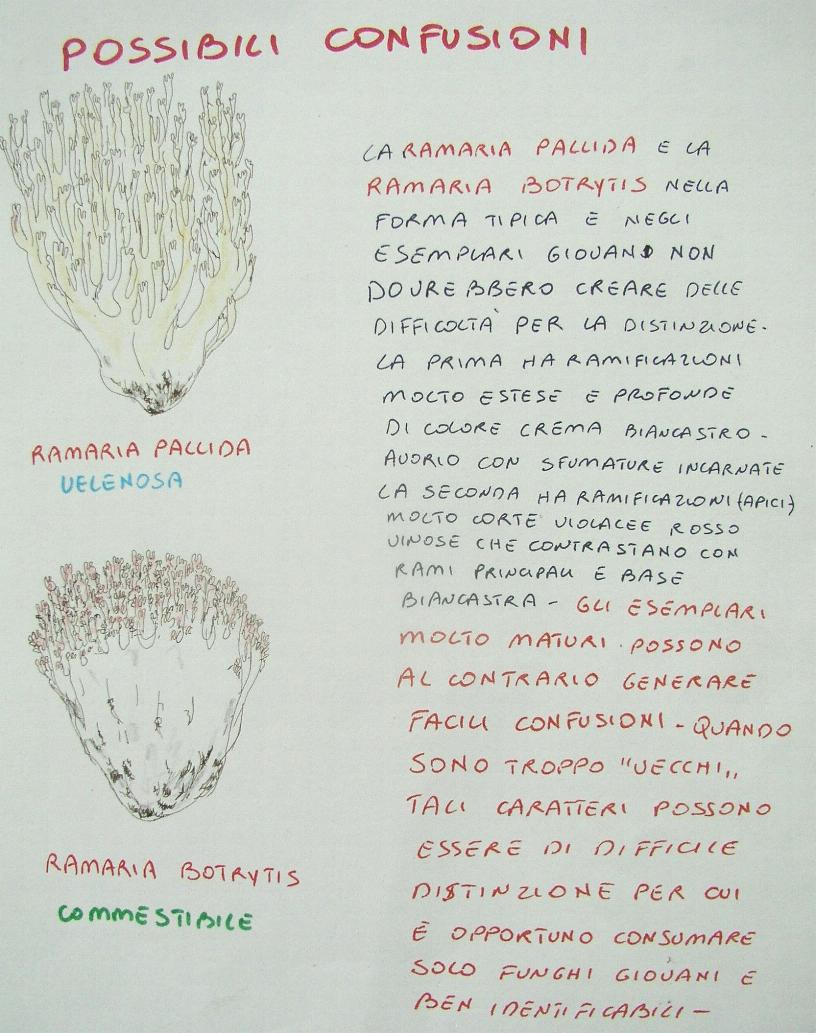 POSSIBILI CONFUSIONI
LA RAMARIA PALLIDA E LA
RAMARIA BOTRYTIS NELLA
FORMA TIPICA E NEGLI
ESEMPLARI GIOVANI NON
DOVREBBERO CREARE DELLE
DIFFICOLTÀ PER LA DISTINZIONE.
LA PRIMA HA RAMIFICAZIONI
MOLTO ESTESE E PROFONDE
DI COLORE CREMA BIANCASTRO -
AVORIO CON SFUMATURE INCARNATE
LA SECONDA HA RAMIFICAZIONI (APICI)
MOLTO CORTE VIOLACEE ROSSO
VINOSE CHE CONTRASTANO CON
RAMI PRINCIPALI E BASE
BIANCASTRA - GLI ESEMPLARI
MOLTO MATURI POSSONO
AL CONTRARIO GENERARE
FACILI CONFUSIONI - QUANDO
SONO TROPPO "VECCHI„
TALI CARATTERI POSSONO
ESSERE DI DIFFICILE
DISTINZIONE PER CUI
È OPPORTUNO CONSUMARE
SOLO FUNGHI GIOVANI E
BEN IDENTIFICABILI -
RAMARIA PALLIDA
VELENOSA
RAMARIA BOTRYTIS
COMMESTIBILE